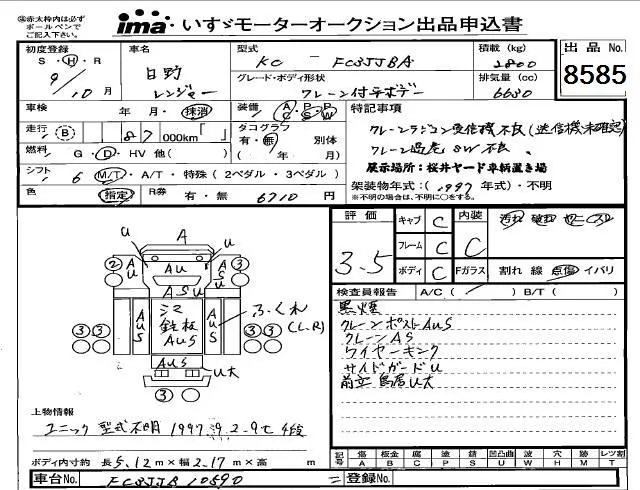 ㊟赤太枠内は必ず
ボールペンで
ご記入下さい。
ima いすゞモーターオークション出品申込書
初度登録 車名 型式 積載(kg) 出品No.
S・H・R 日野 KC - FC3JJBA 2800 8585
9/10月 レンジャー グレード・ボディ形状 排気量(cc)
クレーン付平ボデー 6630
車検 年 月・抹消 装備 A/C P/S P/W 特記事項
走行 B 87 000km「 」 タコグラフ 有・無 別体 クレーンラジコン受信機不良(送信機未確認)
燃料 G・D・HV 他( ) ( 年 月) クレーン過巻SW不良
展示場所:桜井ヤード車両置き場
シフト 6 M/T・A/T・特殊(2ペダル・3ペダル) 架装物年式:(1997年式)・不明
色 指定 R券 有・無 6710円 ※不明の場合は、不明に○をする。
評価 3.5
キャブ C 内装 C
フレーム C
ボディ C Fガラス 割れ 線 点傷 イバリ
検査員報告 A/C( ) B/T( )
黒煙
クレーンポストAUS
クレーンAS
ワイヤーキンク
サイドガードU
前立 鳥居U大
U A U
② AUS AU AUS ③
AUS
AUS シマ鉄板AUS AUS ふくれ(L,R)
③③ ③③
AUS
U大
③
上物情報
ユニック 型式不明 1997 2.9t 4段
ボディ内寸約 長5.12m×幅2.17m×高 m
記号 傷A 板金B 腐C 塗P 錆S 凹凸凸U 曲W 穴H 外M レンズ割T
車台No. FC3JJB 10590 = 登録No.